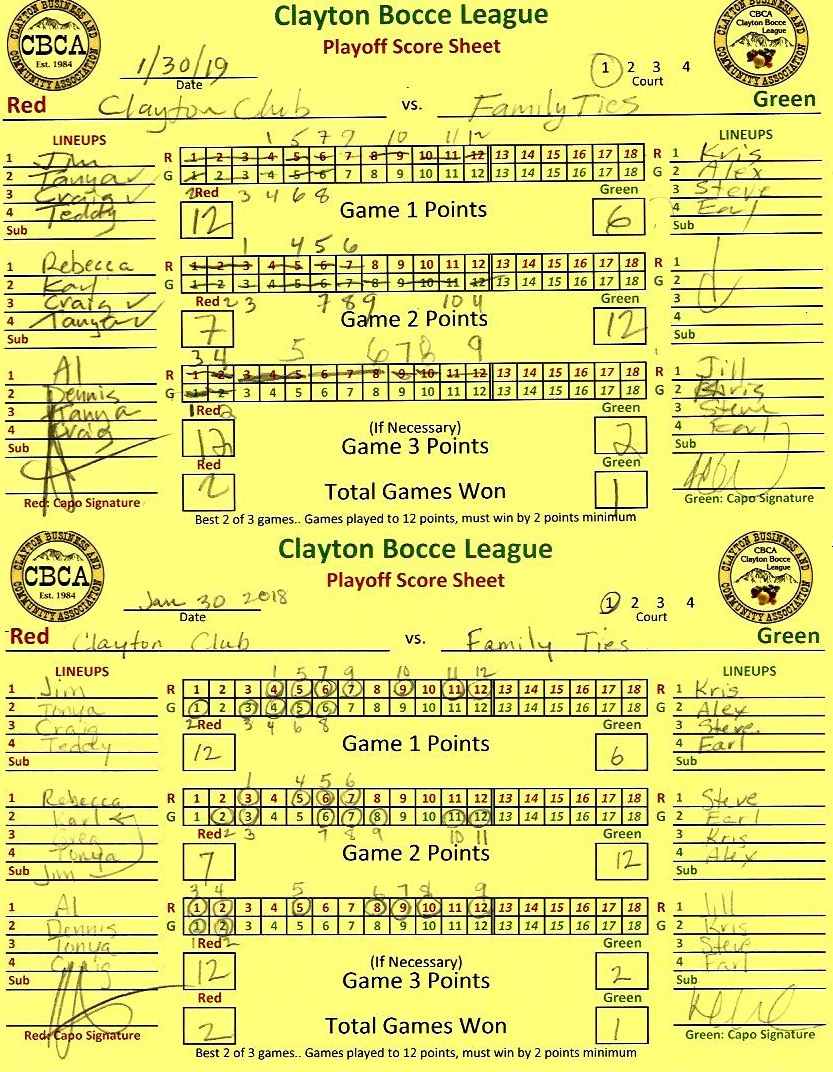 Clayton Bocce League
Playoff Score Sheet
CLAYTON BUSINESS AND COMMUNITY ASSOCIATION
CBCA
Est. 1984
CBCA
Clayton Bocce
League
1/30/19
Date
1 2 3 4
Court
Red Clayton Club vs. Family Ties Green
LINEUPS
LINEUPS
1 5 7 9 10 11 12
1 Jim R 1 2 3 4 5 6 7 8 9 10 11 12 13 14 15 16 17 18 R 1 Kris
2 Tanya G 1 2 3 4 5 6 7 8 9 10 11 12 13 14 15 16 17 18 G 2 Alex
3 Craig 2 Red 3 4 6 8 Green 3 Steve
4 Teddy 12 Game 1 Points 6 4 Earl
Sub Sub
1 4 5 6
1 Rebecca R 1 2 3 4 5 6 7 8 9 10 11 12 13 14 15 16 17 18 R 1
2 Karl G 1 2 3 4 5 6 7 8 9 10 11 12 13 14 15 16 17 18 G 2
3 Craig Red 2 3 7 8 9 10 11 Green 3
4 Tanya 7 Game 2 Points 12 4
Sub Sub
3 4 5 6 7 8 9
1 Al R 1 2 3 4 5 6 7 8 9 10 11 12 13 14 15 16 17 18 R 1 Jill
2 Dennis G 1 2 3 4 5 6 7 8 9 10 11 12 13 14 15 16 17 18 G 2 Kris
3 Tanya 1 Red 2 Green 3 Steve
4 Craig 12 (If Necessary) 2 4 Earl
Sub Game 3 Points Sub
Red Green
2 Total Games Won 1
Red: Capo Signature Green: Capo Signature
Best 2 of 3 games.. Games played to 12 points, must win by 2 points minimum
Clayton Bocce League
Playoff Score Sheet
CLAYTON BUSINESS AND COMMUNITY ASSOCIATION
CBCA
Est. 1984
CBCA
Clayton Bocce
League
Jan 30 2018
Date
1 2 3 4
Court
Red Clayton Club vs. Family Ties Green
LINEUPS
LINEUPS
1 5 7 9 10 11 12
1 Jim R 1 2 3 4 5 6 7 8 9 10 11 12 13 14 15 16 17 18 R 1 Kris
2 Tonya G 1 2 3 4 5 6 7 8 9 10 11 12 13 14 15 16 17 18 G 2 Alex
3 Craig 2 Red 3 4 6 8 Green 3 Steve
4 Teddy 12 Game 1 Points 6 4 Earl
Sub Sub
1 4 5 6
1 Rebecca R 1 2 3 4 5 6 7 8 9 10 11 12 13 14 15 16 17 18 R 1 Steve
2 Karl G 1 2 3 4 5 6 7 8 9 10 11 12 13 14 15 16 17 18 G 2 Earl
3 Red 2 3 7 8 9 10 11 Green 3 Kris
4 Tonya 7 Game 2 Points 12 4 Alex
Sub Jim Sub
3 4 5 6 7 8 9
1 Al R 1 2 3 4 5 6 7 8 9 10 11 12 13 14 15 16 17 18 R 1 Jill
2 Dennis G 1 2 3 4 5 6 7 8 9 10 11 12 13 14 15 16 17 18 G 2 Kris
3 Tonya 1 Red 2 Green 3 Steve
4 Craig 12 (If Necessary) 2 4 Earl
Sub Game 3 Points Sub
Red Green
2 Total Games Won 1
Red: Capo Signature Green: Capo Signature
Best 2 of 3 games.. Games played to 12 points, must win by 2 points minimum